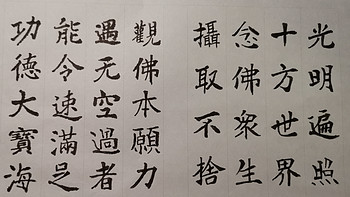 光明遍照
十方世界
念佛衆生
攝取不捨
觀佛本願力
遇无空過者
能令速滿足
功德大寶海